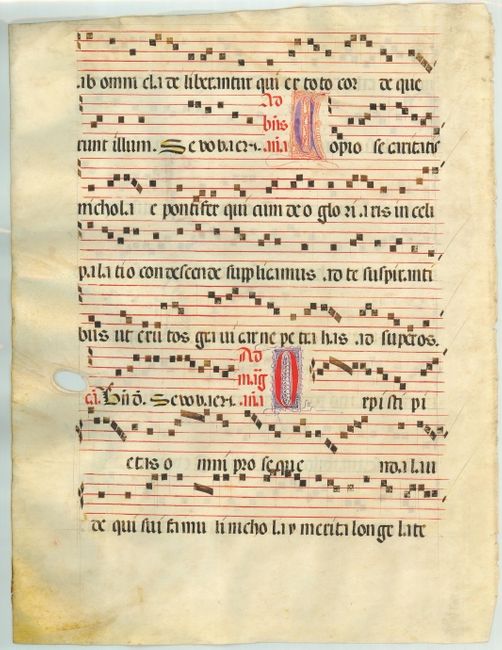 ab omni cla de liberantur qui ex to to cor de que
runt illum. Se vo va e. Ad bñs aña Copio se caritatis
nichola e pontifex qui cum de o glo ri a ris in celi
pa la ti o con descende supplicamus ad te suspiranti
bus ut exu tos gra ui car ne pe tra has ad superos.
Bñd. Se vo va e. Ad mag aña O xpi sti pi
etas o mni pro se que nda lau
de qui sui famu li nicho lay merita longe late